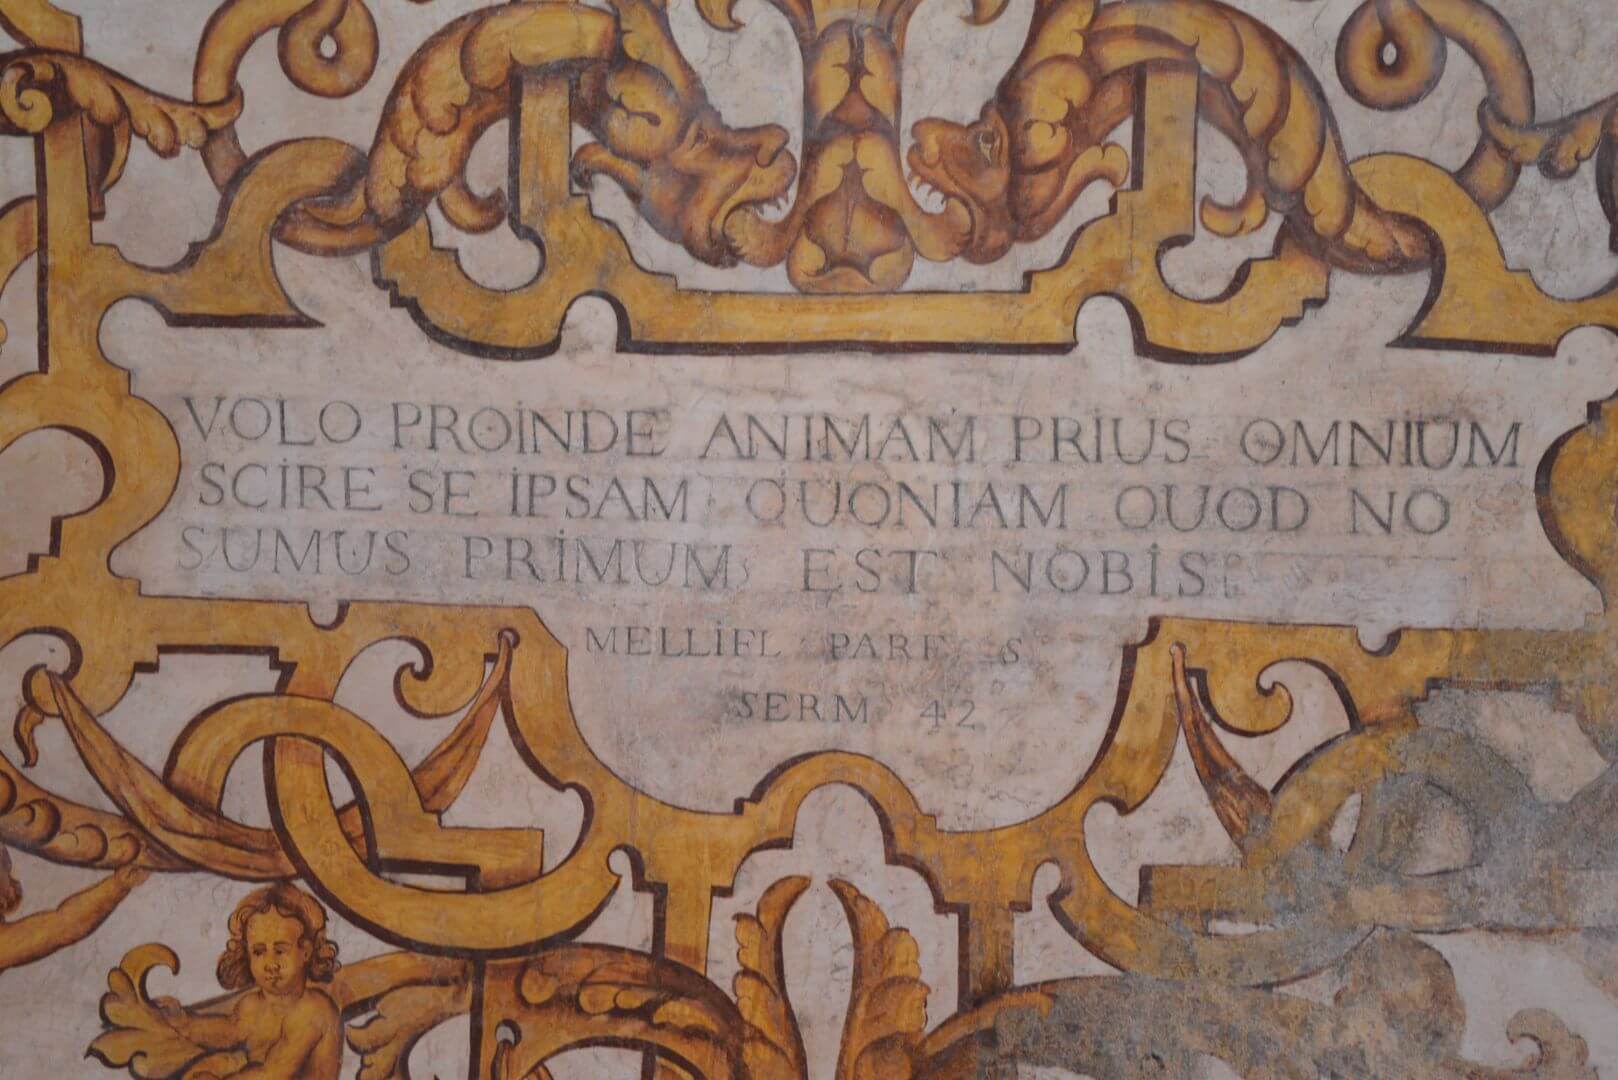 VOLO PROINDE ANIMAM PRIUS OMNIUM
SCIRE SE IPSAM QUONIAM QUOD NO
SUMUS PRIMUM EST NOBIS
MELLIFL PARE S
SERM 42